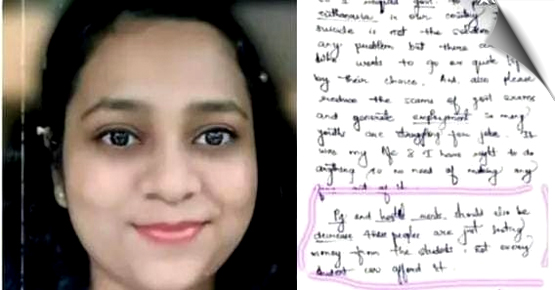 in our country
suicide is not the solution
any problem but there are
who wants to go on quote life
by their choice. And, also please
reduce the scams of govt exams
and generate employment so many
youths are struggling for jobs. It
was my life & I have right to do
anything so no need of making any
of it
Pg and hostel rents should also be
decrease these people are just looting
money from the students, not every
student can afford it.